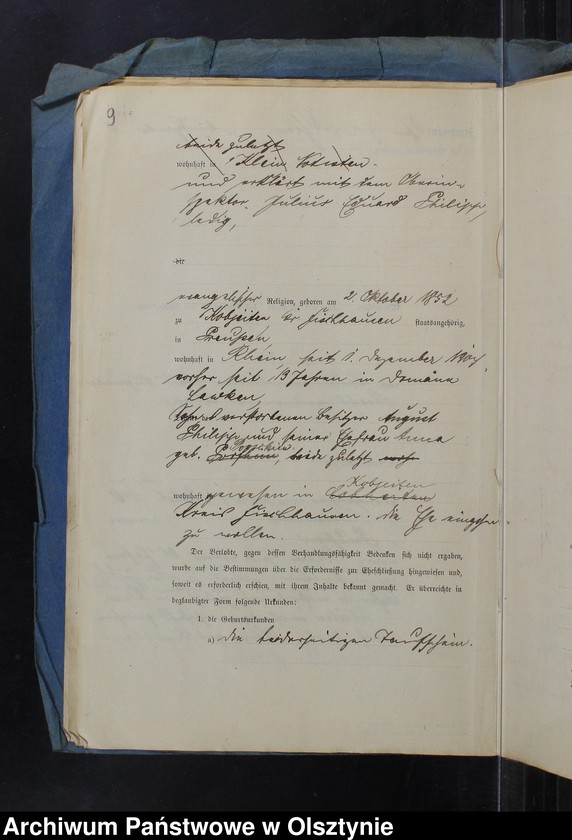 9
beide zuletzt
wohnhaft in Klein
und erklärt mit dem Oberin-
spektor Julius Eduard Philipp,
ledig,
die
evangelischer Religion, geboren am 2. Oktober 1852
zu Kobjeiten Kr Fischhausen staatsangehörig,
in Preußen,
wohnhaft in Rhein, seit 1. Dezember
vorher seit 13 Jahren in Domäne
Lawken,
verstorbenen Besitzer August
Philipp und seiner Ehefrau Anna
geb. beide zuletzt
Kobjeiten
wohnhaft gewesen in
Kreis Fischhausen. die Ehe eingehen
zu wollen.
Der Verlobte, gegen dessen Verhandlungsfähigkeit Bedenken sich nicht ergaben,
wurde auf die Bestimmungen über die Erfordernisse zur Eheschließung hingewiesen und,
soweit es erforderlich erschien, mit ihrem Inhalte bekannt gemacht. Er überreichte in
beglaubigter Form folgende Urkunden:
1. die Geburtsurkunden
a) die beiderseitigen Taufschein.
Archiwum Państwowe w Olsztynie